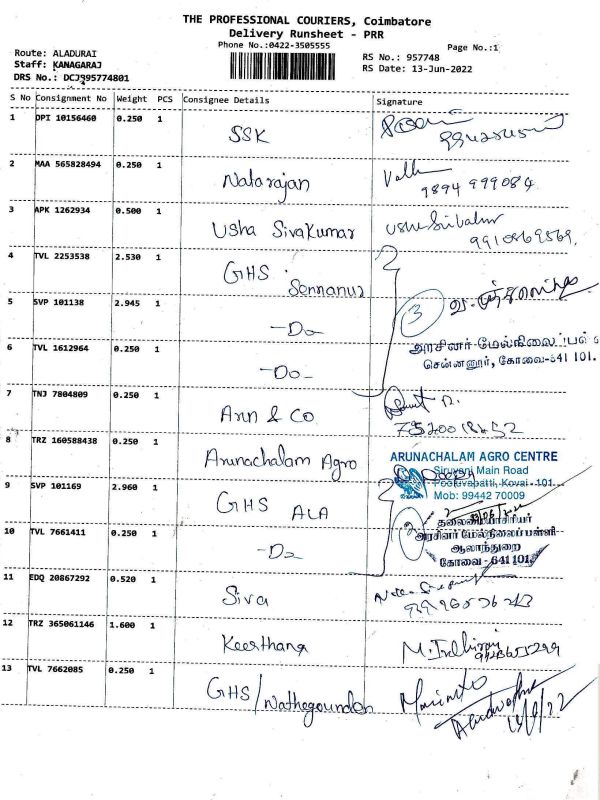 THE PROFESSIONAL COURIERS, Coimbatore
Delivery Runsheet - PRR
Phone No.:0422-3505555
Page No.:1
Route: ALADURAI
Staff: KANAGARAJ
DRS No.: DCJ995774801
RS No.: 957748
RS Date: 13-Jun-2022
S No Consignment No Weight PCS Consignee Details Signature
1 DPI 10156460 0.250 1 SSK
2 MAA 565828494 0.250 1 Natarajan
9894 999084
3 APK 1262934 0.500 1 Usha SivaKumar
4 TVL 2253538 2.530 1 GHS Sennanur
5 SVP 101138 2.945 1 -Do-
3
அரசினர் மேல்நிலைப்
6 TVL 1612964 0.250 1 -Do-
சென்னனூர், கோவை-641 101.
7 TNJ 7804809 0.250 1 Ann & Co
8 TRZ 160588438 0.250 1 Arunachalam Agro
ARUNACHALAM AGRO CENTRE
Siruvani Main Road
Pooluvapatti, Kovai - 101
Mob: 99442 70009
9 SVP 101169 2.960 1 GHS ALA
2
தலைமையாசிரியர்
அரசினர் மேல்நிலைப் பள்ளி
10 TVL 7661411 0.250 1 -Do-
ஆலாந்துறை
கோவை - 641 101
11 EDQ 20867292 0.520 1 Siva
12 TRZ 365061146 1.600 1 Keerthana
13 TVL 7662085 0.250 1 GHS/Nathegounden